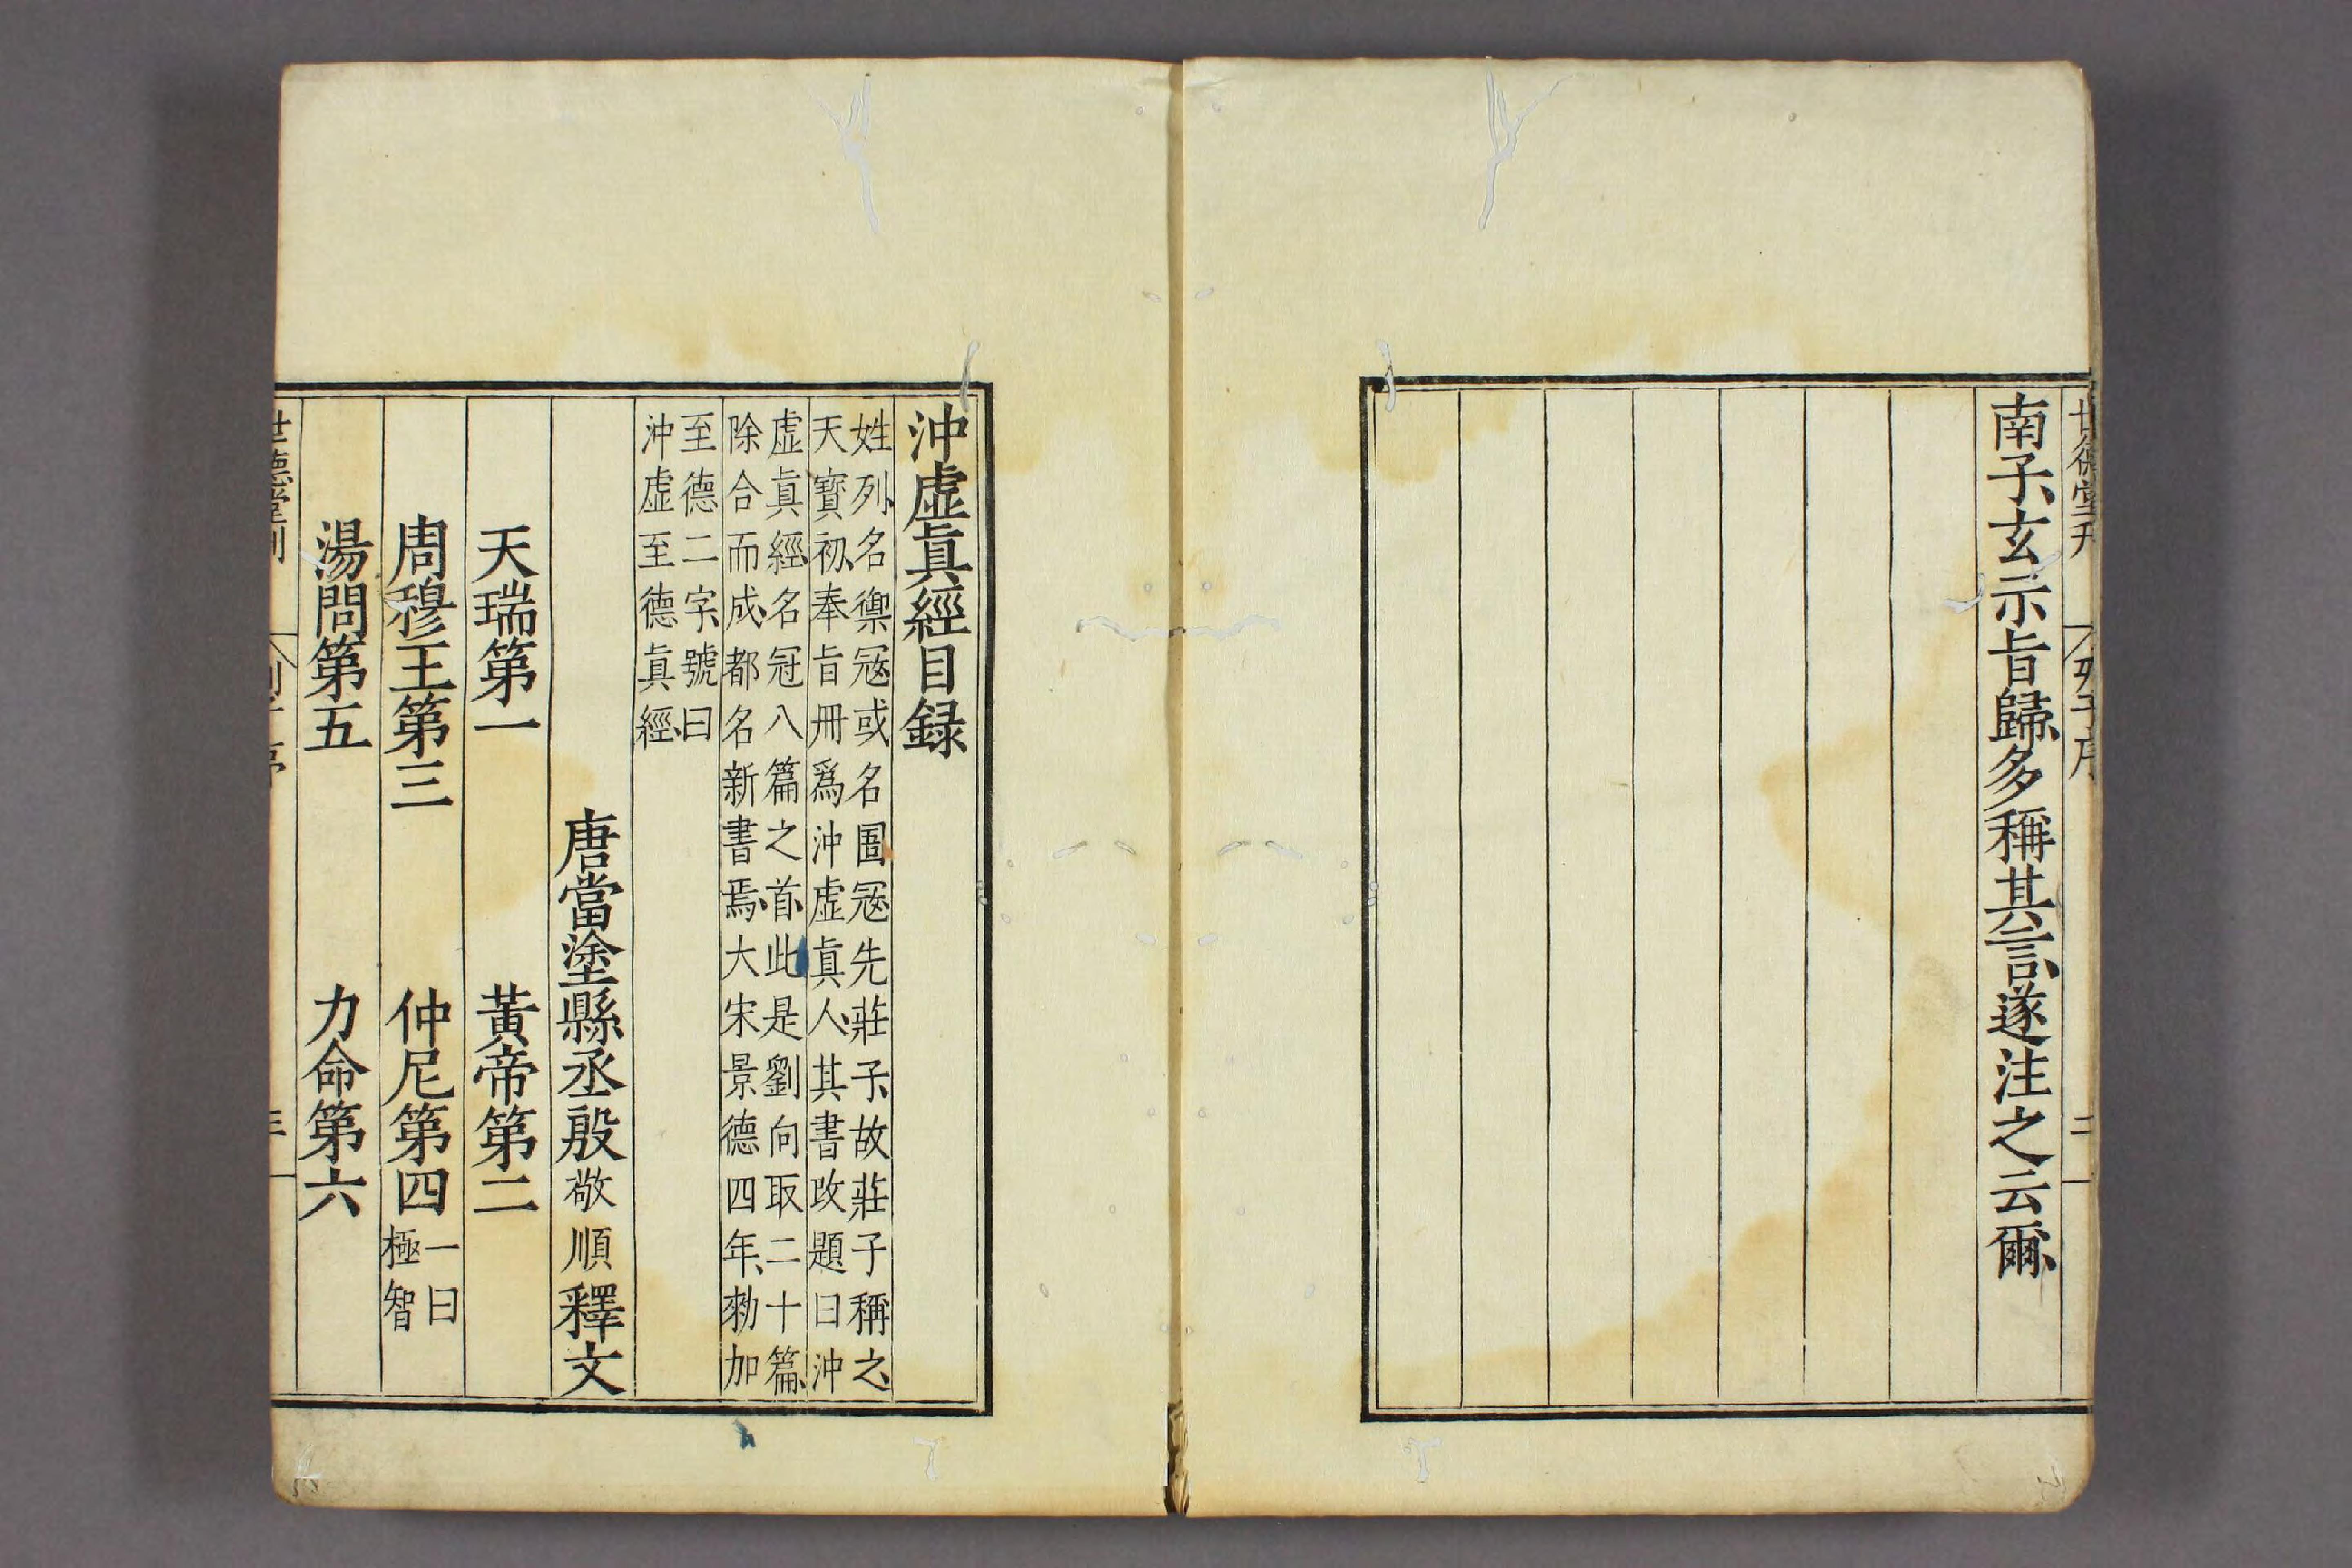 南子玄示旨歸多稱其言遂注之云爾
列子序
二
沖虛眞經目録
姓列名禦冦或名圄冦先莊子故莊子稱之
天寳初奉旨冊爲沖虛眞人其書改題曰沖
虛眞經名冠八篇之首此是劉向取二十篇
除合而成都名新書焉大宋景德四年勑加
至德二字號曰
沖虛至德眞經
唐當塗縣丞殷敬順釋文
天瑞第一　黃帝第二
周穆王第三　仲尼第四一曰極智
湯問第五　力命第六
世德堂刊